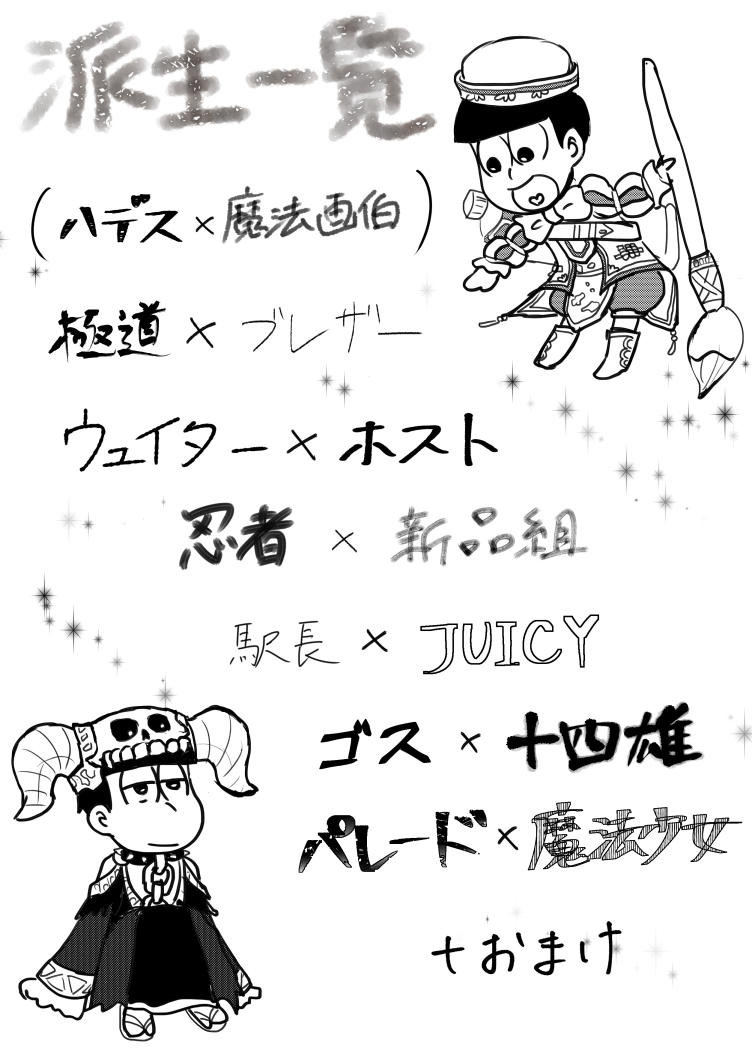 派生一覧
(ハデス×魔法画伯)
極道×ブレザー
ウェイター×ホスト
忍者×新品組
駅長×JUICY
ゴス×十四雄
パレード×魔法少女
+おまけ